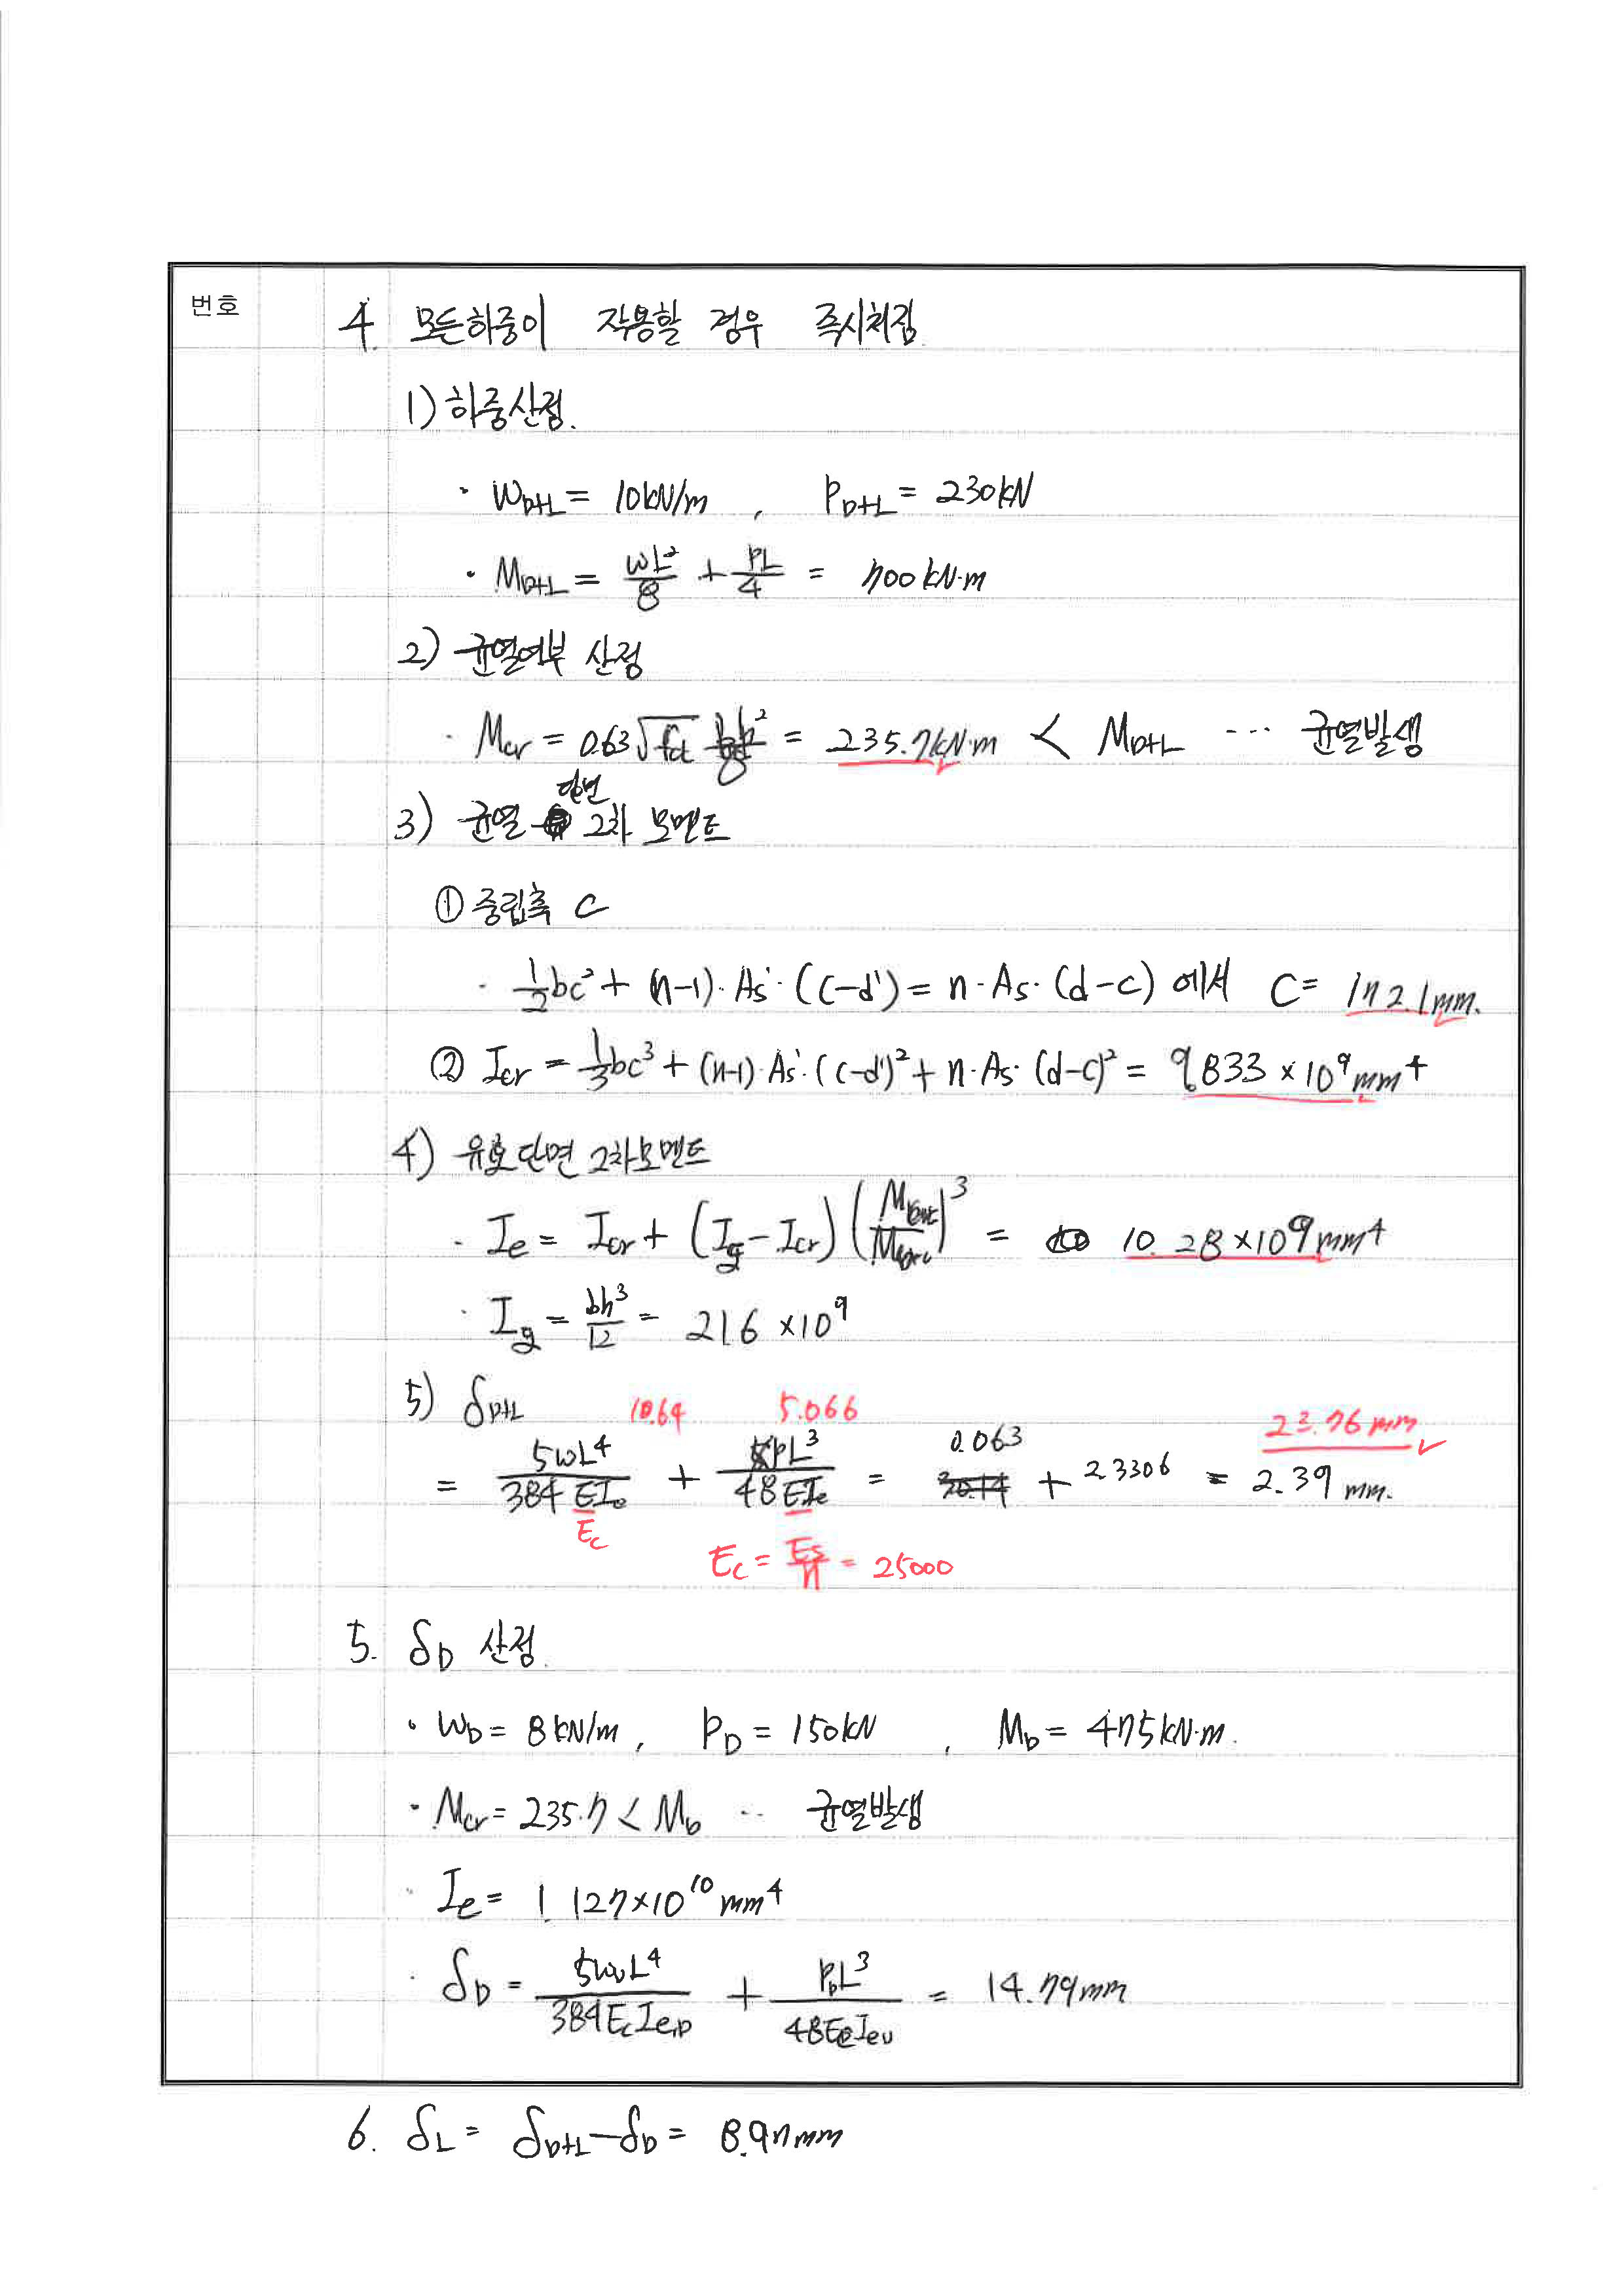 번호
4. 모든하중이 작용할 경우 즉시처짐
1) 하중산정.
· W_{D+L} = 10kN/m , P_{D+L} = 230kN
· M_{D+L} = \frac{wL²}{8} + \frac{PL}{4} = 700kN·m
2) 균열여부 산정
· Mcr = 0.63√fck \frac{bh²}{6} = 235.7kN·m < M_{D+L} ··· 균열발생
3) 균열 단면 2차 모멘트
① 중립축 C
· \frac{1}{2}bc² + (n-1)·As'·(c-d') = n·As·(d-c) 에서 C = 172.1mm.
② Icr = \frac{1}{3}bc³ + (n-1)·As'·(c-d')² + n·As·(d-c)² = 9.833 × 10⁹mm⁴
4) 유효단면 2차모멘트
· Ie = Icr + (Ig - Icr) ( )³ = 10.28×10⁹mm⁴
· Ig = \frac{bh³}{12} = 21.6 ×10⁹
5) δ_{D+L}
10.64 5.066 0.063 23.76mm
= \frac{5wL⁴}{384EIe} + \frac{PL³}{48EIe} = + 2.3306 = 2.39 mm.
Ec Ec = \frac{Es}{n} = 25000
5. δ_D 산정.
· W_D = 8kN/m , P_D = 150kN , M_D = 475kN·m.
· Mcr = 235.7 < M_D ··· 균열발생
· Ie = 1.127×10¹⁰mm⁴
· δ_D = \frac{5wL⁴}{384EcIe,D} + \frac{P_DL³}{48EcIe,D} = 14.79mm
6. δ_L = δ_{D+L} - δ_D = 8.97mm